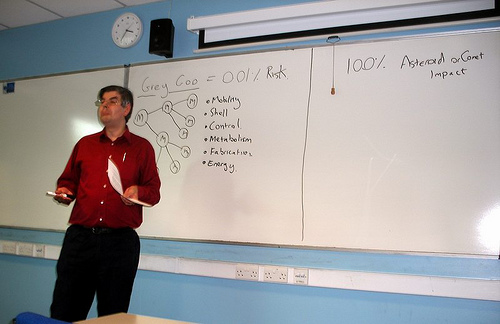 Grey Goo = 0.01% Risk
M M
M M
M
M M
M
• Mobility
• Shell
• Control
• Metabolism
• Fabrication
• Energy.
100% Asteroid or Comet
Impact